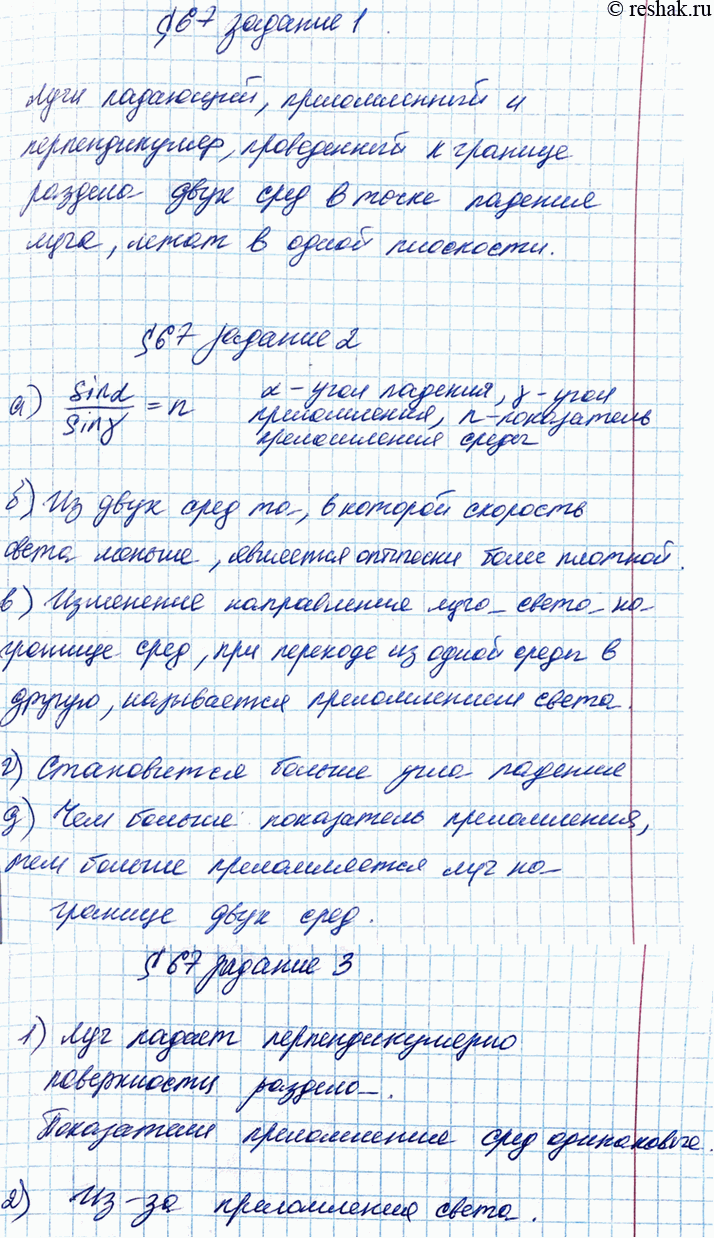 © reshak.ru
§67 задание 1
Лучи падающий, преломленный и
перпендикуляр, проведенный к границе
раздела двух сред в точке падения
луча, лежат в одной плоскости.
§67 задание 2
а) sinα / sinγ = n α – угол падения, γ – угол
преломления, n – показатель
преломления среды
б) Из двух сред та, в которой скорость
света меньше, является оптически более плотной.
в) Изменение направления луча света на
границе сред, при переходе из одной среды в
другую, называется преломлением света.
г) Становится больше угла падения
д) Чем больше показатель преломления,
тем больше преломляется луч на
границе двух сред.
§67 задание 3
1) Луч падает перпендикулярно
поверхности раздела.
Показатели преломления сред одинаковые.
2) Из-за преломления света.